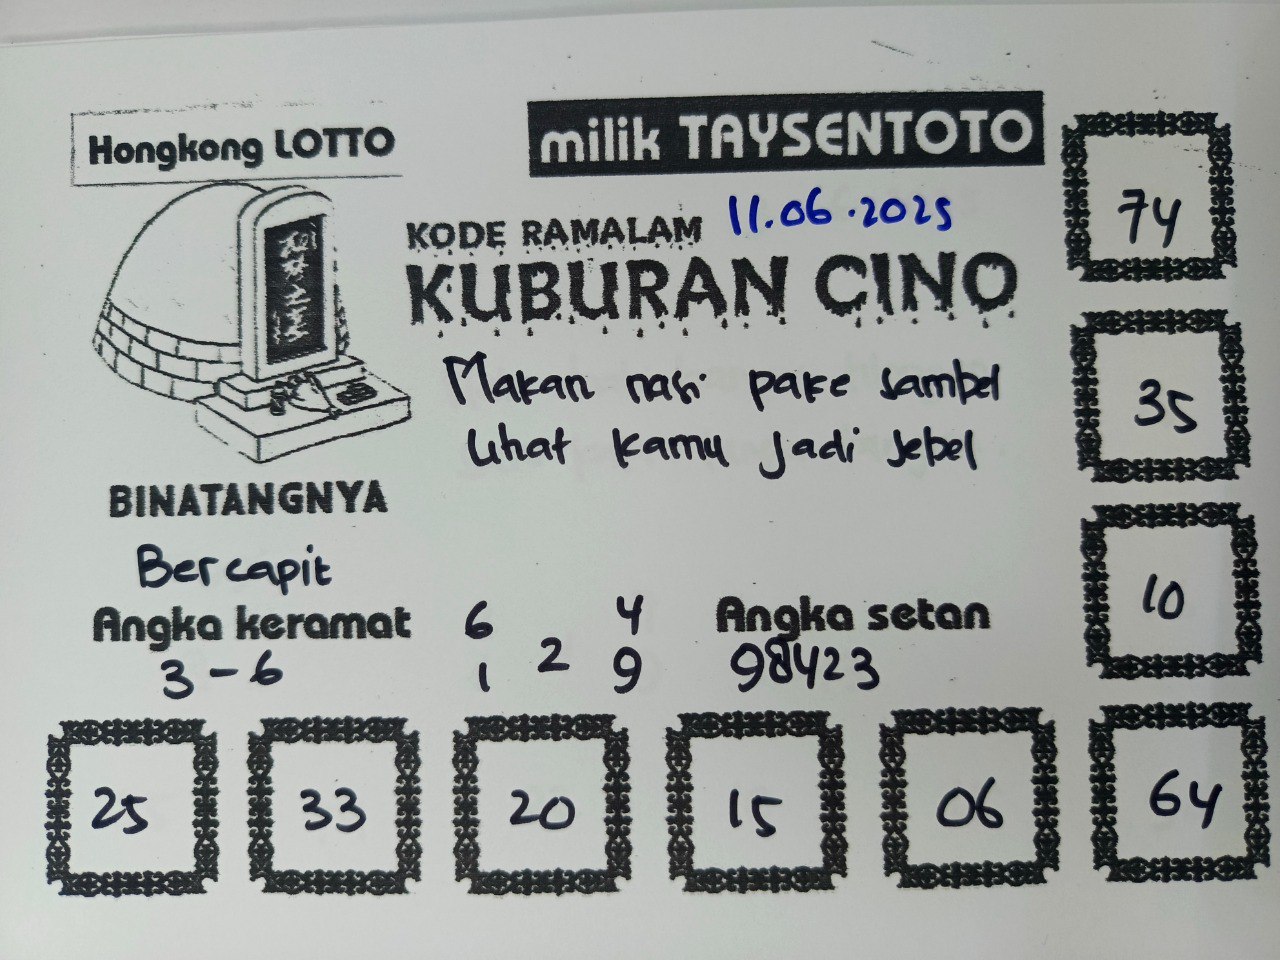 Hongkong LOTTO
milik TAYSENTOTO
74
KODE RAMALAM 11.06.2025
KUBURAN CINO
Makan nasi pake sambel
35
Lihat kamu jadi sebel
BINATANGNYA
Bercapit
10
Angka keramat
6 4
Angka setan
3-6
1 2 9
98423
25 33 20 15 06 64